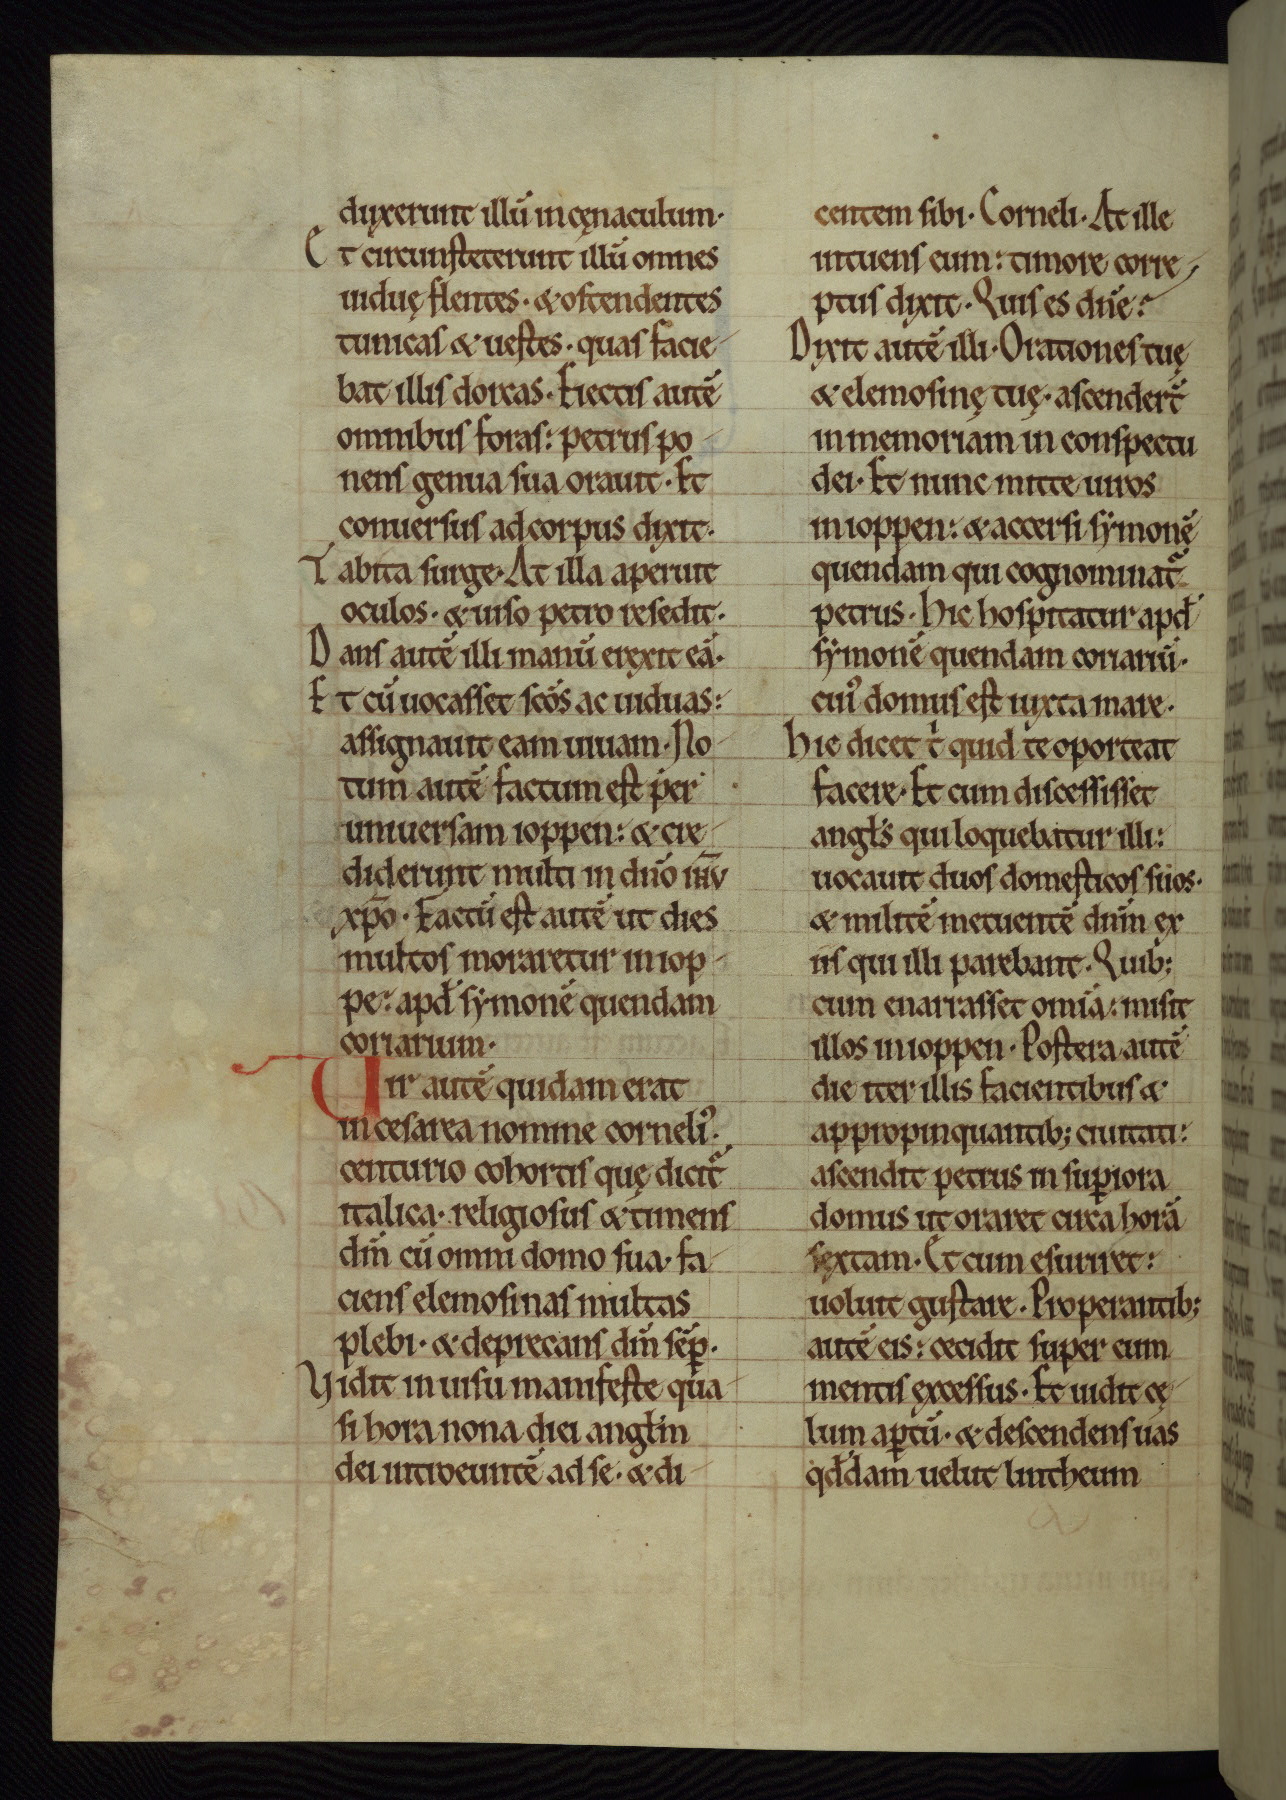 duxerunt illū in cęnaculum·
Et circunsteterunt illū omnes
uiduę flentes· & ostendentes
tunicas & uestes· quas facie-
bat illis dorcas· Eiectis autē
omnibus foras: petrus po-
nens genua sua orauit· Et
conuersus ad corpus dixit·
Tabita surge· At illa aperuit
oculos· & uiso petro resedit·
Dans autē illi manū erexit eā·
Et cū uocasset sc̄os ac uiduas:
assignauit eam uiuam· No-
tum autē factum est per
uniuersam ioppen: & cre-
diderunt multi in dn̄o ih̄u
xp̄o· Factū est autē ut dies
multos moraretur in iop-
pe: apđ symonē quendam
coriarium·
Uir autē quidam erat
in cesarea nomine corneli᾽·
centurio cohortis quę dicit᷑
italica· religiosus & timens
dm̄ cū omni domo sua· fa-
ciens elemosinas multas
plebi· & deprecans dm̄ sēp̄·
Vidit in uisu manifeste qua-
si hora nona diei angłm
dei introeuntē ad se· & di-
centem sibi· Corneli· At ille
intuens eum: timore corre-
ptus dixit· Quis es dn̄e?
Dixit autē illi· Orationes tuę
& elemosinę tuę· ascender̄t
in memoriam in conspectu
dei· Et nunc mitte uiros
in ioppen: & accersi symonē
quendam qui cognominat᷑
petrus· Hic hospitatur apđ
symonē quendam coriariū·
cui᾽ domus est iuxta mare·
Hic dicet t̍ quid te oporteat
facere· Et cum discessisset
angłs qui loquebatur illi:
uocauit duos domesticos suos·
& militē metuentē dnm̄ ex
iis qui illi parebant· Quib;
cum enarrasset omīa: misit
illos in ioppen· Postera autē
die iter illis facientibus &
appropinquantib; ciuitati:
ascendit petrus in sup̄iora
domus ut oraret circa horā
sextam· Et cum esuriret:
uoluit gustare· Properantib;
autē eis: cecidit super eum
mentis excessus· Et uidit cę-
lum ap̄tū· & descendens uas
qđdam uelut lintheum